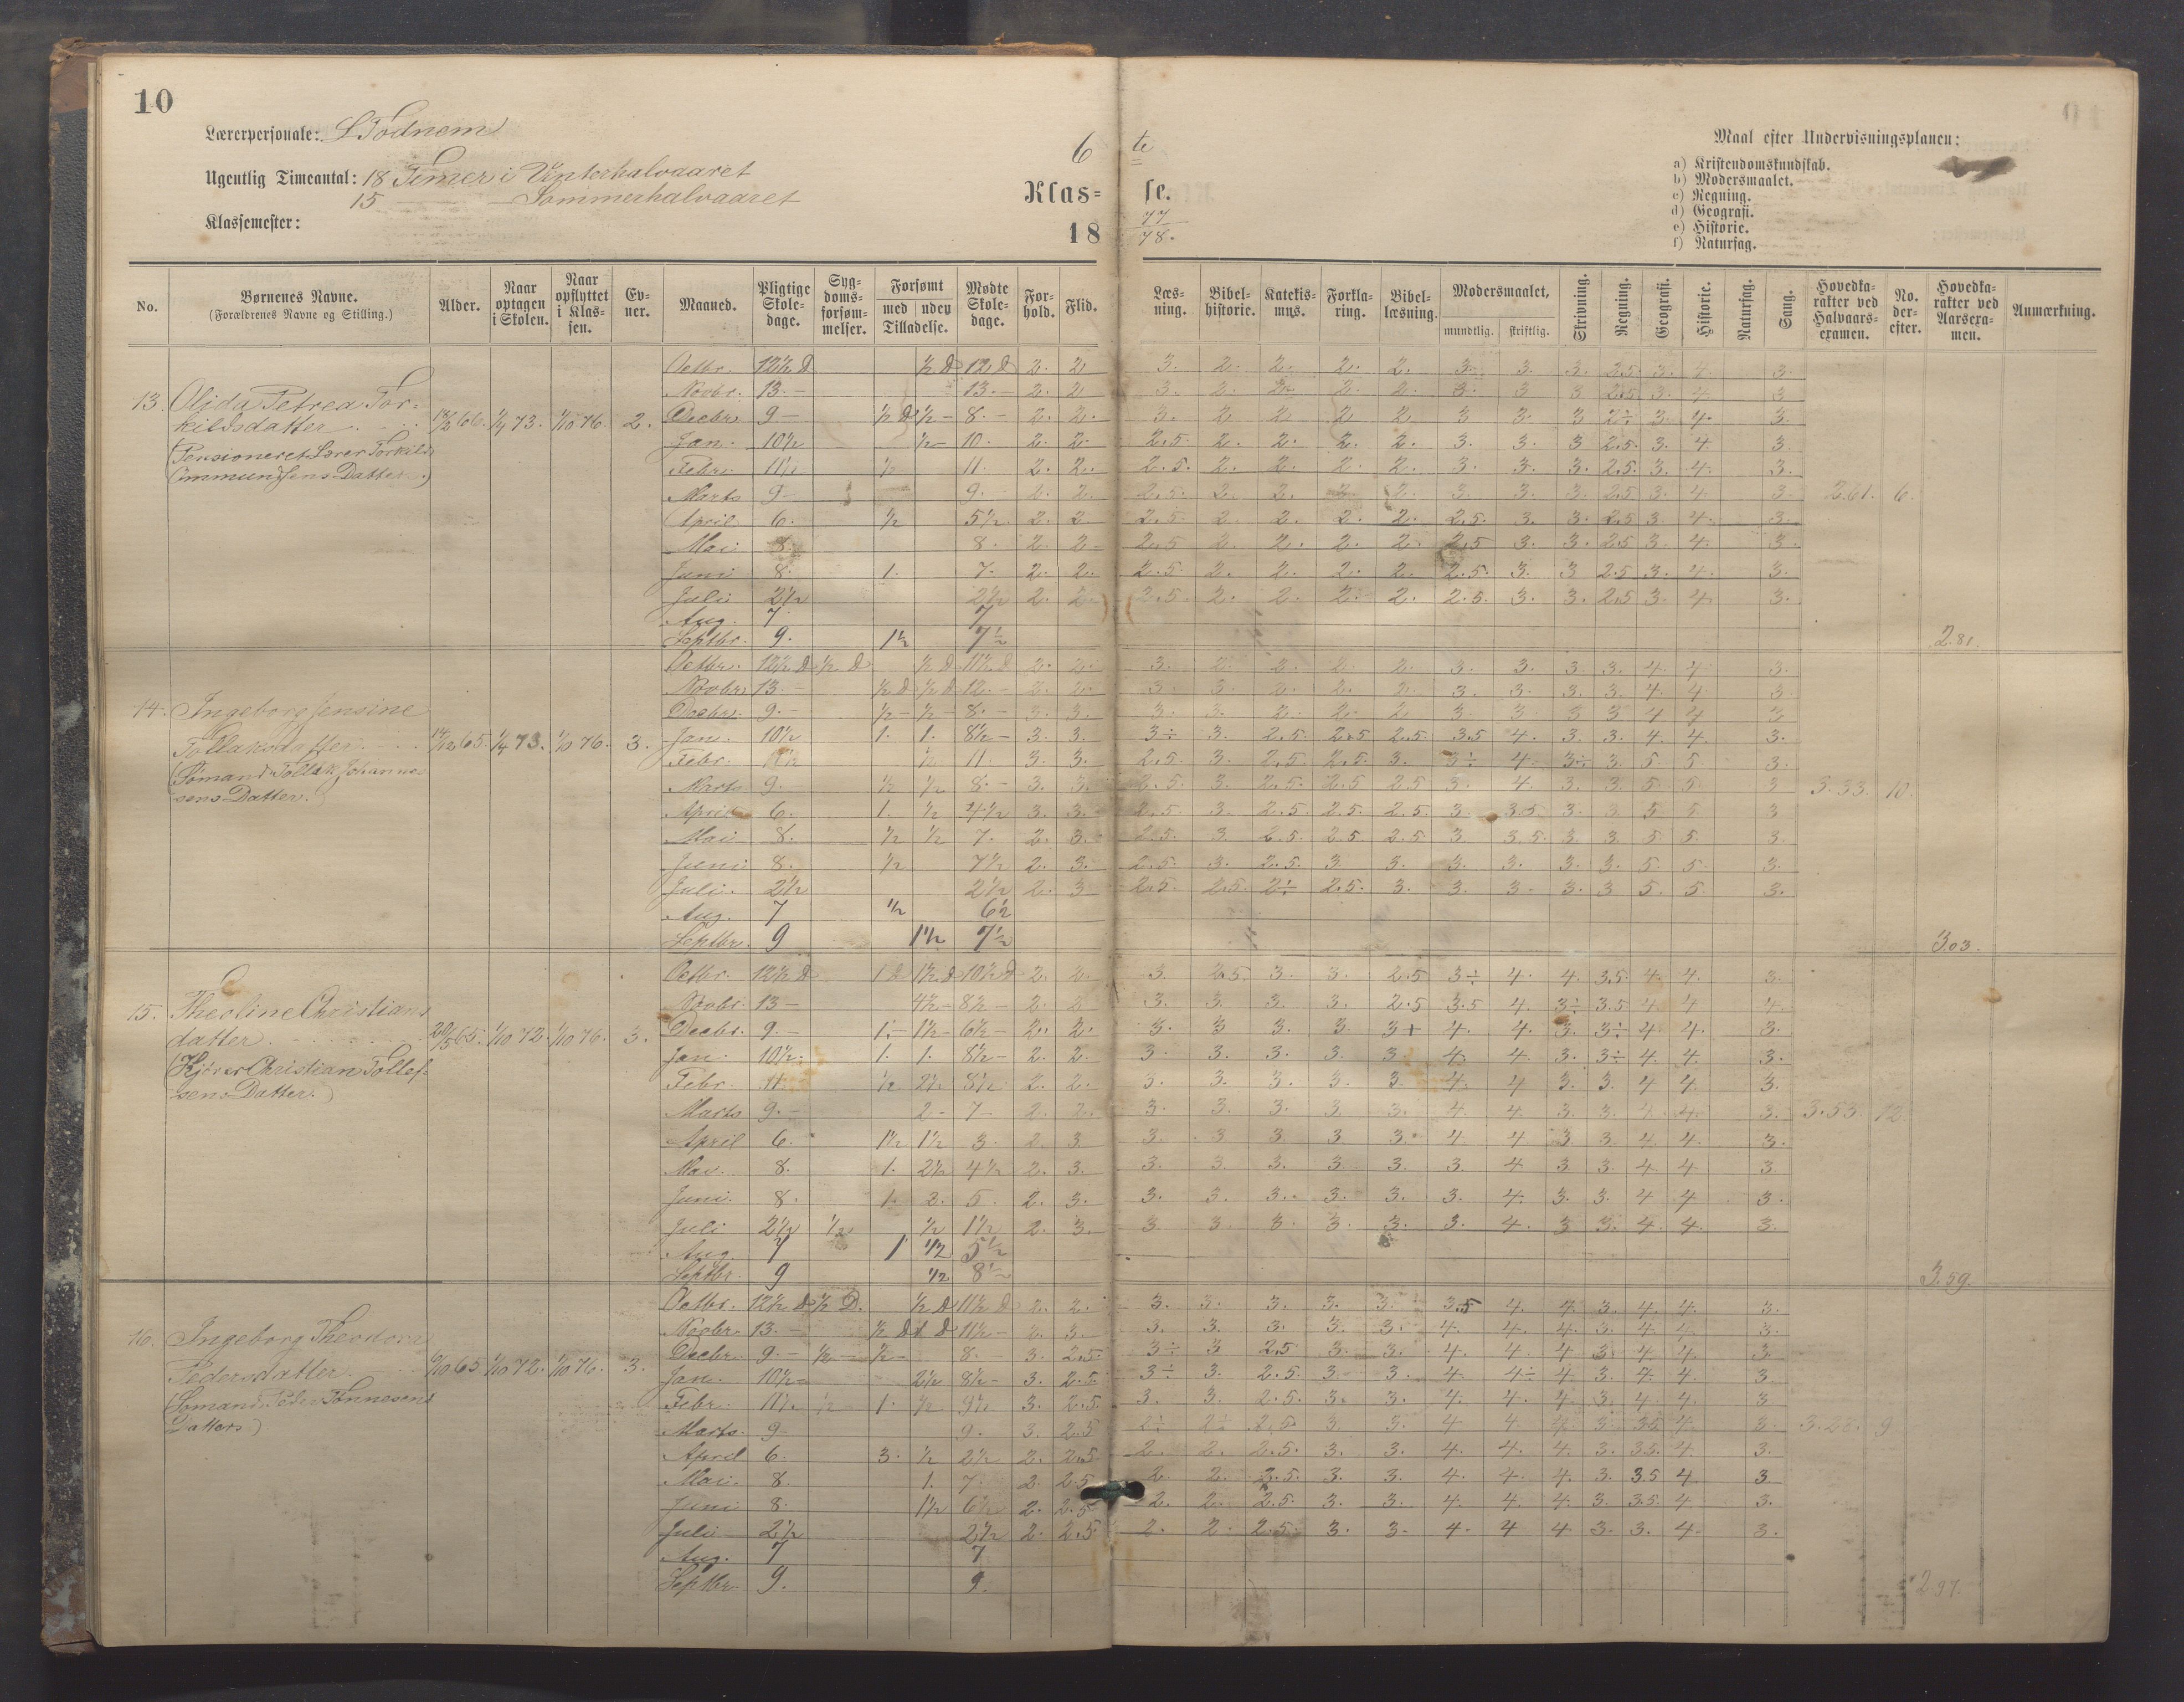 10
Lærerpersonale: S Todnem
Ugentlig Timeantal: 18 Timer i Vinterhalvaaret
15 — — Sommerhalvaaret
Klassemester:
6 te
Klas= se.
18 77/78.
Maal efter Undervisningsplanen:
a) Kristendomskundskab.
b) Modersmaalet.
c) Regning.
d) Geografi.
e) Historie.
f) Naturfag.
No. Børnenes Navne. (Forældrenes Navne og Stilling.) Alder. Naar optagen i Skolen. Naar opflyttet i Klassen. Evner. Maaned. Pligtige Skoledage. Sygdomsforsømmelser. Forsømt med uden Tilladelse. Mødte Skoledage. Forhold. Flid. Læsning. Bibelhistorie. Katekismus. Forklaring. Bibellæsning. Modersmaalet, mundtlig. skriftlig. Skrivning. Regning. Geografi. Historie. Naturfag. Sang. Hovedkarakter ved Halvaarsexamen. No. derefter. Hovedkarakter ved Aarsexamen. Anmærkning.
13. Olida Petrea Tor-
kildsdatter 1/4 73. 1/10 76. 2.
(Pensioneret Lærer Torkild
Ommundsens Datter.)
Octbr. 12½ D ½ D 12 D 2. 2 3. 2. 2. 2. 2. 3. 3. 3. 2.5. 3. 4. 3.
Novbr. 13. — 13. — 2. 2 3. 2. 2. 2. 2. 3. 3 3 2.5 3. 4. 3
Decbr. 9 — ½ D ½ — 8. — 2. 2. 3. 2 2 2 2 3 3. 3 2÷ 3. 4. 3
Jan. 10½ ½ — 10. 2. 2. 2.5. 2. 2. 2. 2 3. 3. 3 2.5. 3. 4 3
Febr. 11½ ½ 11. 2. 2. 2.5. 2. 2. 2. 2. 3. 3. 3. 2.5. 3. 4. 3.
Marts 9 — 9. — 2. 2.5. 2. 2. 2. 2. 3. 3. 3. 2.5 3. 4. 3. 2.61. 6.
April 6. ½ 5½ 2. 2 2.5 2 2. 2. 2. 2.5. 3. 3. 2.5 3. 4. 3.
Mai 8. 8. 2. 2 2.5 2. 2. 2. 2. 2.5 3. 3. 2.5 3. 4. 3.
Juni 8. 1. 7. 2. 2. 2.5. 2. 2. 2. 2. 2.5. 3. 3 2.5 3. 4. 3.
Juli 2½ 2½ 2. 2. 2.5 2. 2. 2. 2. 2.5. 3. 3. 2.5 3. 4. 3.
Aug. 7 7
Septbr. 9. 1½ 7½ 2.81.
14. Ingeborg Jensine
Tollaksdatter 14/12 65. 1/4 73. 1/10 76. 3.
(Sømand Tollak Johannes
sens Datter.)
Octbr. 12½ D ½ D ½ D 11½ D 3. 2. 3. 2. 2. 2. 2. 3. 3. 3. 3. 4. 4. 3.
Novbr. 13. — ½ D ½ D 12. — 2. 2. 3. 3. 2. 2. 2. 3. 3. 3. 3. 4. 4. 3.
Decbr. 9. — ½ — ½ — 8. — 3. 3. 3. 3. 2. 2. 2 3. 3. 3 3 4 4 3
Jan. 10½ 1. 1. 8½ — 3. 3. 3÷ 3. 2.5. 2.5 2.5 3.5 4. 3. 3. 4. 4. 3.
Febr. 11½ ½ 11. 3. 3. 2.5. 3. 2.5 2.5. 3. 3÷ 4. 3÷ 3. 5. 5 3.
Marts 9. — ½ ½ 8. — 3. 3. 2.5. 3. 2.5. 2.5 2.5 3. 4. 3. 3. 5 5. 3 3.33. 10.
April 6. 1. ½ 4½ 3. 3. 2.5 3. 2.5 2.5. 2.5 3 3.5 3. 3 5 5 3
Mai 8. ½ ½ 7. 2. 3. 2.5. 3. 2.5. 2.5 2.5 3 3.5. 3. 3 5. 5. 3.
Juni 8. ½ 7½ 2. 3. 2.5. 3. 2.5. 3. 3. 3. 3. 3. 3. 5. 5. 3.
Juli. 2½ 2½ 2. 3 2.5 2.5. 2÷ 2.5. 3. 3. 3. 3. 3 5. 5 3.
Aug. 7 ½ 6½
Septbr. 9 1½ 7½ 3.03.
15. Theoline Christians
datter 20/5 65. 1/10 72. 1/10 76. 3.
(Kjører Christian Tollef-
sens Datter.)
Octbr. 12½ D 1 D 1½ D 10½ D 2. 2. 3. 2.5 3. 3. 2.5 3÷ 4. 4. 3.5. 4. 4. 3.
Novbr. 13 — 4½ — 8½ — 2. 2 3. 3. 3. 3. 2.5 3.5 4. 3÷ 3.5 4. 4 4.
Decbr. 9. — 1. — 1½ — 6½ — 2. 2. 3. 3 3. 3. 3+ 4. 4. 3. 3÷ 4. 4. 3.
Jan. 10½. 1. 1. 8½ — 2. 2. 3. 3. 3. 3. 3. 4. 4. 3. 3÷ 4. 4. 3.
Febr. 11. ½ 2½ 8½ 2. 2. 3. 3. 3. 3. 3. 4. 4 3. 3. 4 4. 3.
Marts 9. — 2 — 7 — 2. 2. 3. 3. 3. 3. 3. 4 4. 3. 3. 4 4. 3. 3.53. 12.
April 6. 1½ 1½ 3. 2. 3 3. 3 3 3. 3. 4. 4 3 3. 4. 4. 3.
Mai. 8. 1. 2½ 4½ 2. 3. 3. 3. 3. 3. 3. 3. 4 3. 3. 4 4. 3.
Juni. 8. 1. 2. 5. 2. 3. 3. 3. 3. 3. 3. 3. 4. 3. 3. 4. 4 3.
Juli 2½ ½ ½ 1½ 2. 3. 3 3. 3. 3. 3. 3. 4. 3 3. 4 4. 3.
Aug. 7 1 ½ 5½
Septbr. 9 ½ 8½ 3.59.
16. Ingeborg Theodora
Pedersdatter 65. 1/10 72. 1/10 76. 3.
(Sømand Peder Tønnesens
Datters)
Octbr. 12½ D ½ D. ½ D 11½ D 2. 2. 3. 3. 3. 3. 3. 3.5 4. 4. 3. 4. 4. 3.
Novbr. 13. — ½ D 1 D 11½ — 2. 3. 3. 3. 3. 3. 3. 4. 4. 4. 3. 4. 4. 3.
Decbr. 9. — ½ — ½ — 8. — 3. 2.5. 3÷ 3 2.5 3. 3. 4. 4. 4 3. 4 4. 3
Jan. 10½ — 2½ 8½ — 3. 2.5. 3÷ 3. 2.5 3. 3. 4. 4÷ 4 3. 4. 4. 3.
Febr. 11½ ½ 1. ½ 9½ 3. 2.5. 3. 3. 2.5. 3. 3. 4. 4. 4. 3. 4. 4. 3
Marts. 9 — 9. 3. 2.5 2÷ 2÷ 2.5. 3 3. 4 4. 4 3. 3.5 4. 3. 3.28. 9
April 6. 3. ½ 2½ 2. 2.5. 2. 2. 2.5. 3. 3. 4. 4. 4. 3. 3.5. 4. 3.
Mai. 8. 1. 7. 2. 2.5. 2. 2. 2.5. 3. 3. 4. 4. 4. 3. 3.5 4. 3
Juni 8. 1½ 6½ 2. 2.5 2. 2. 2.5. 3. 3. 4. 4. 4. 3 3.5. 4 3.
Juli 2½ 2½ 2. 2.5 2. 2. 2.5. 3. 3. 4. 4 4 3. 3. 4. 3.
Aug. 7 7
Septbr. 9. 9. 2.97.